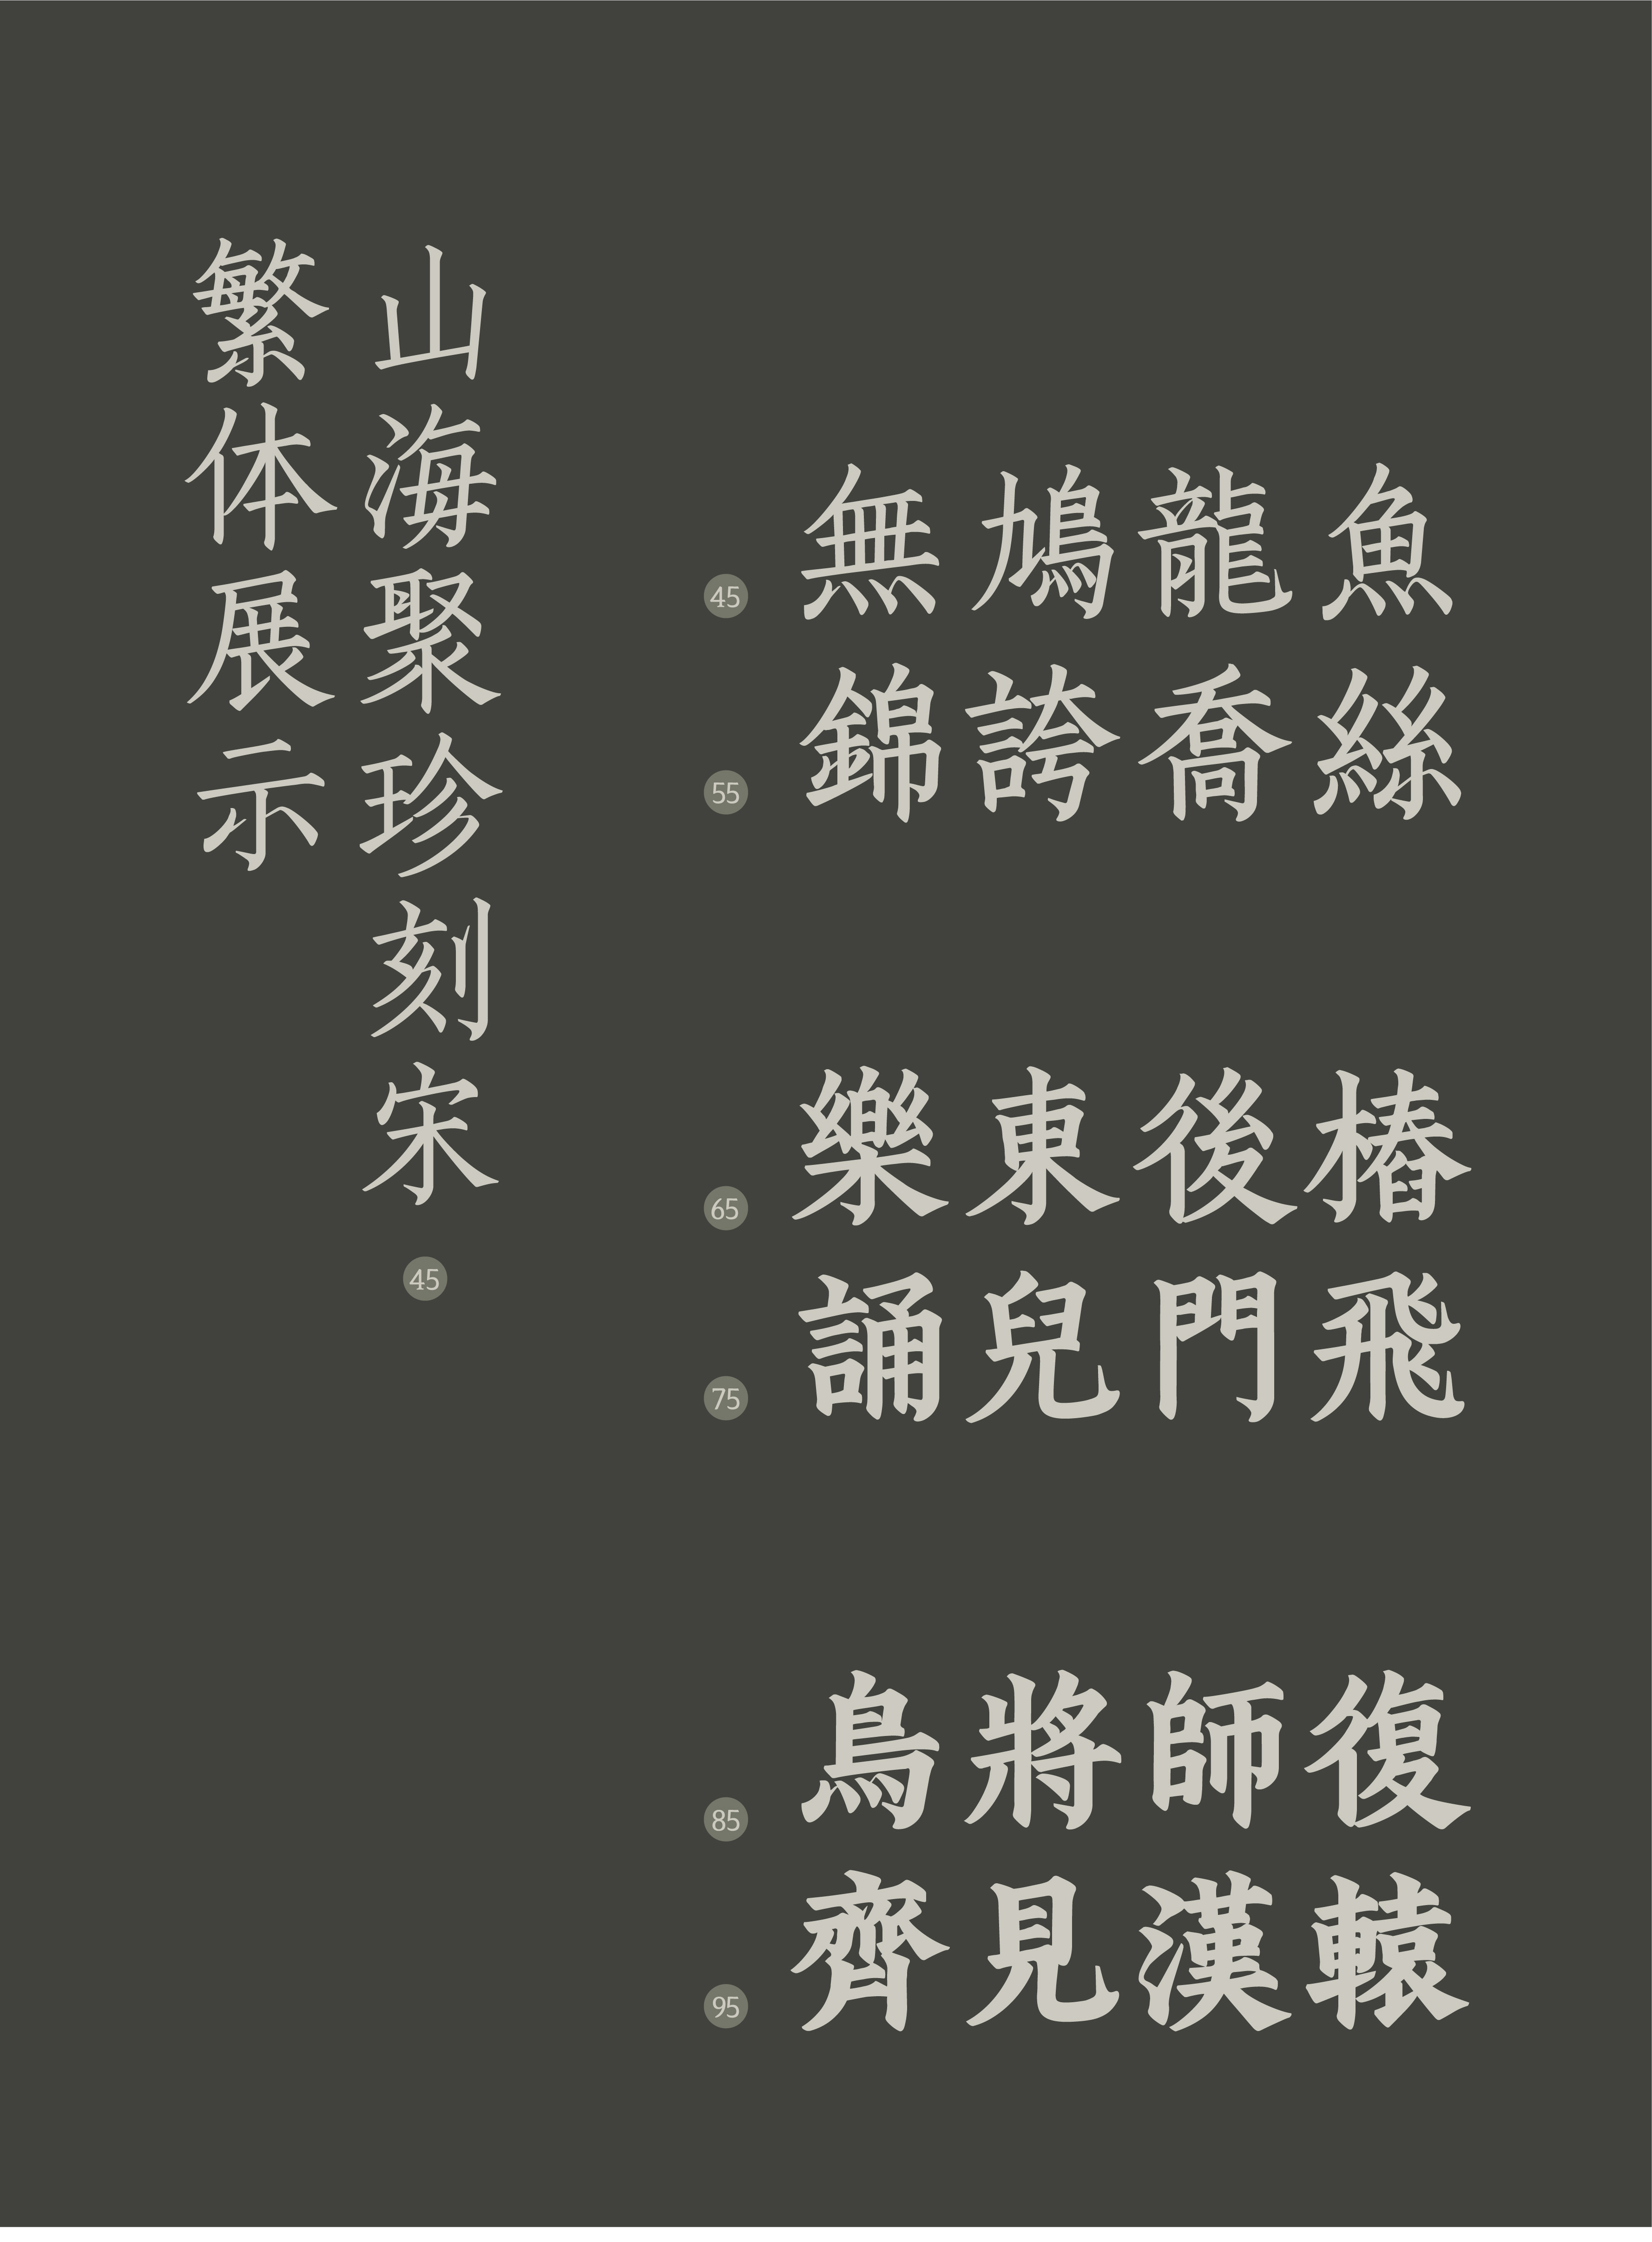 山海聚珍刻宋
繁体展示
45
45 無鳩龍魚
55 錦誇喬絲
65 樂東後樁
75 誦兒門飛
85 鳥將師復
95 齊見漢轅